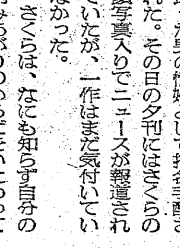 た男の情婦として指名手配さ
れた。その日の夕刊にはさくらの
写真入りでニュースが報道され
ていたが、一作はまだ気付いてい
なかった。
さくらは、なにも知らず自分の